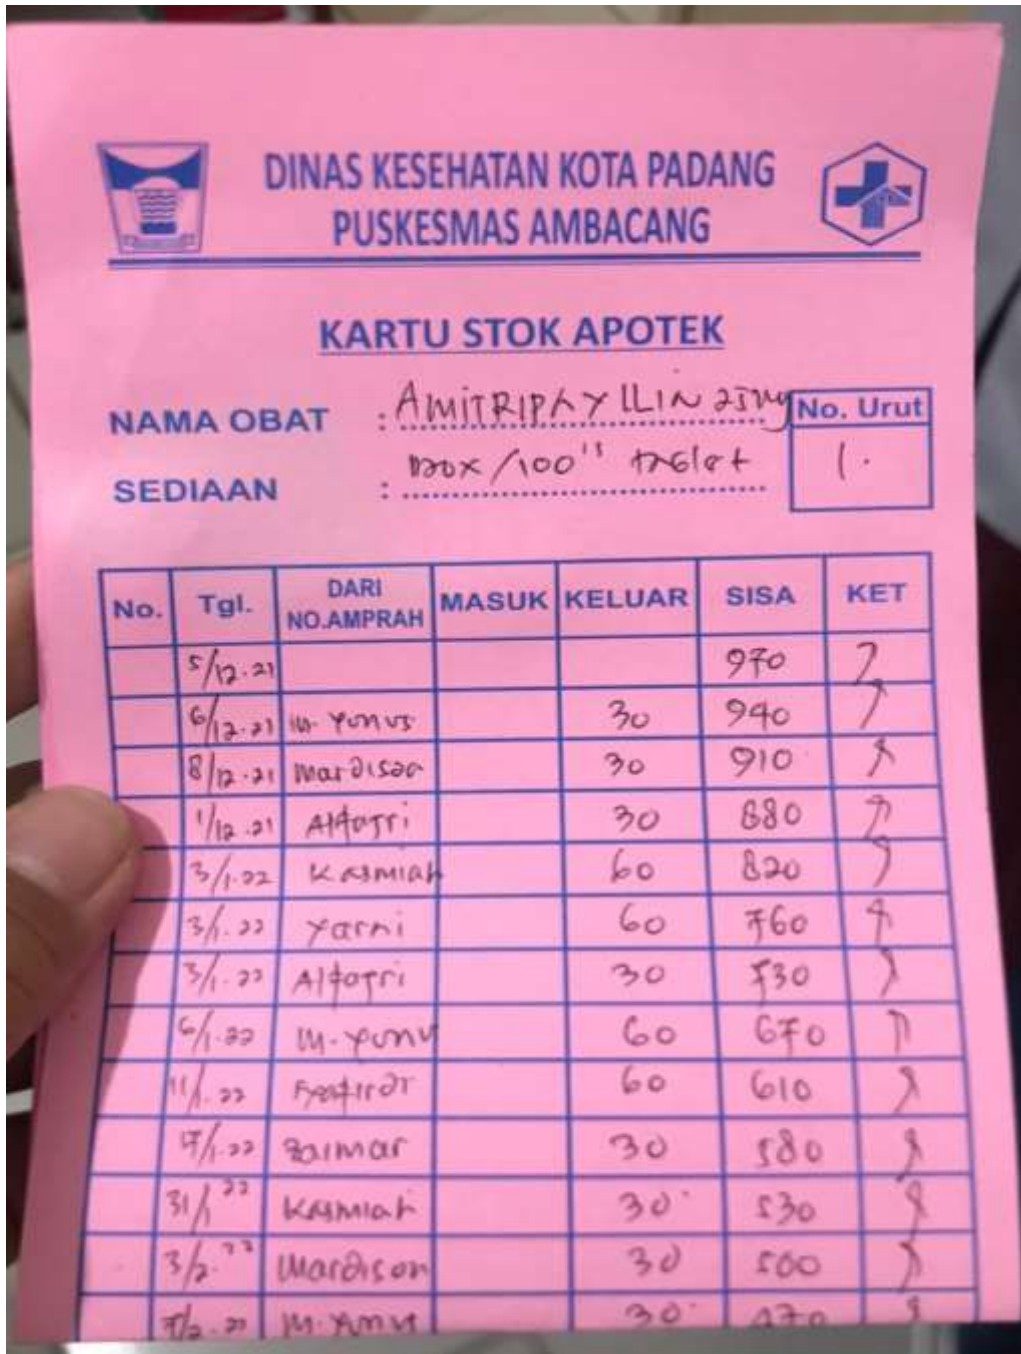 DINAS KESEHATAN KOTA PADANG
PUSKESMAS AMBACANG
KARTU STOK APOTEK
NAMA OBAT : AMITRIPHYLLIN 25mg
No. Urut
SEDIAAN : box/100's tablet
1.
No. Tgl. DARI NO.AMPRAH MASUK KELUAR SISA KET
5/12.21 970
6/12.21 M. Yunus 30 940
8/12.21 Mardison 30 910
1/12.21 Alfatri 30 880
3/1.22 Kasmiah 60 820
3/1.22 Yarni 60 760
3/1.22 Alfatri 30 730
6/1.22 M. Yunus 60 670
11/1.22 60 610
17/1.22 Zaimar 30 580
31/1 22 Kasmiah 30 530
3/2.22 Mardison 30 500
7/2.22 M. Yunus 30 470